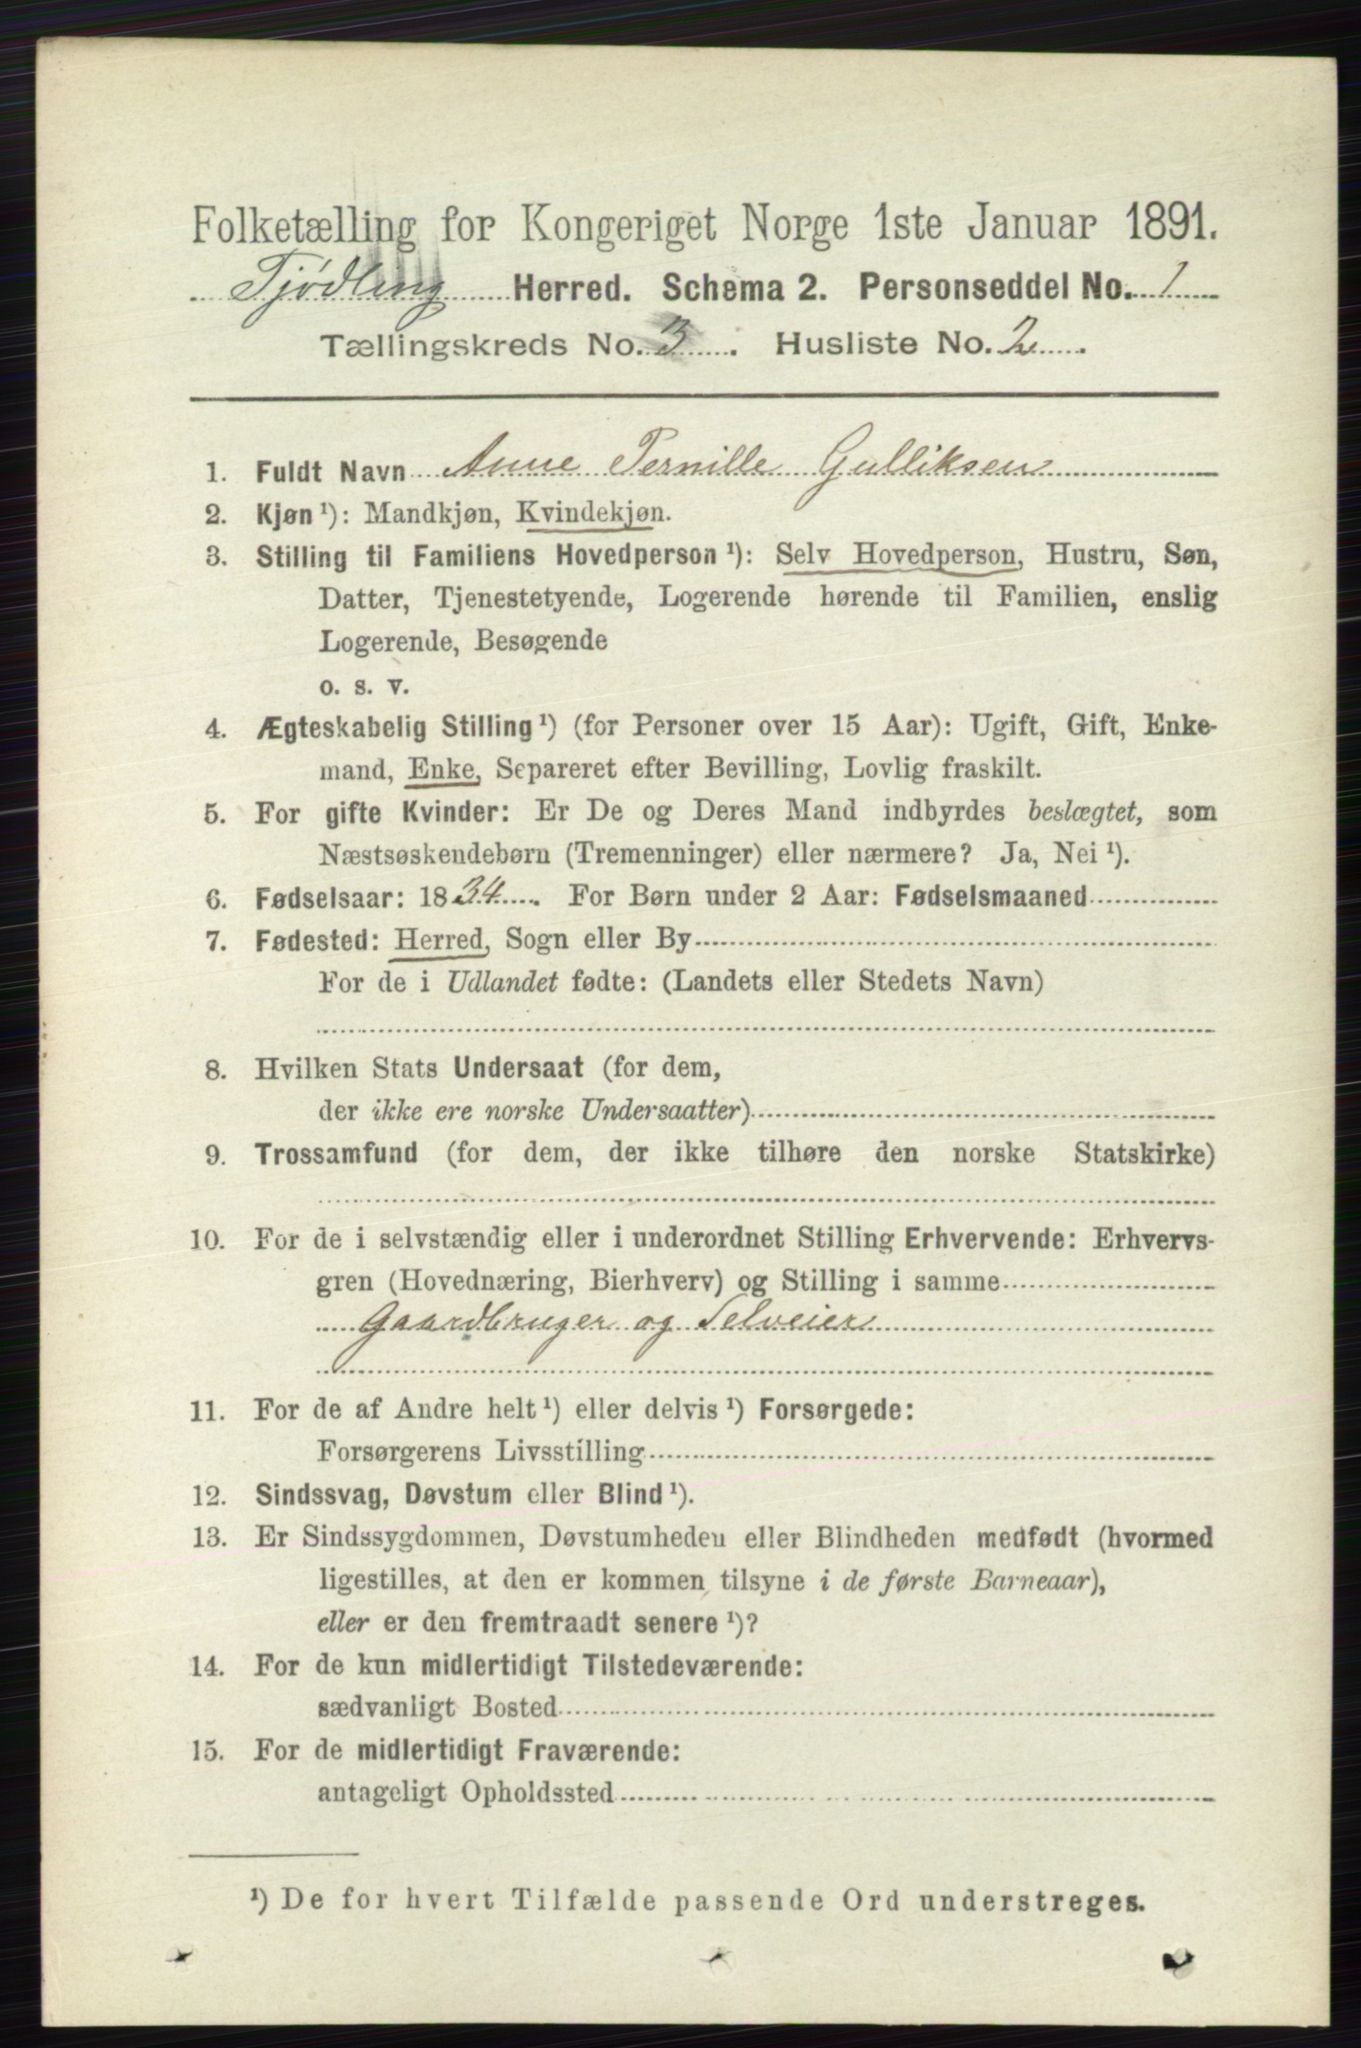 Folketælling for Kongeriget Norge 1ste Januar 1891.
Tjødling Herred. Schema 2. Personseddel No. 1
Tællingskreds No. 3. Husliste No. 2.
1. Fuldt Navn Anne Pernille Gulliksen
2. Kjøn ¹): Mandkjøn, Kvindekjøn.
3. Stilling til Familiens Hovedperson ¹): Selv Hovedperson, Hustru, Søn,
Datter, Tjenestetyende, Logerende hørende til Familien, enslig
Logerende, Besøgende
o. s. v.
4. Ægteskabelig Stilling ¹) (for Personer over 15 Aar): Ugift, Gift, Enke-
mand, Enke, Separeret efter Bevilling, Lovlig fraskilt.
5. For gifte Kvinder: Er De og Deres Mand indbyrdes beslægtet, som
Næstsøskendebørn (Tremenninger) eller nærmere? Ja, Nei ¹).
6. Fødselsaar: 1834. For Børn under 2 Aar: Fødselsmaaned
7. Fødested: Herred, Sogn eller By
For de i Udlandet fødte: (Landets eller Stedets Navn)
8. Hvilken Stats Undersaat (for dem,
der ikke ere norske Undersaatter)
9. Trossamfund (for dem, der ikke tilhøre den norske Statskirke)
10. For de i selvstændig eller i underordnet Stilling Erhvervende: Erhvervs-
gren (Hovednæring, Bierhverv) og Stilling i samme
Gaardbruger og Selveier
11. For de af Andre helt ¹) eller delvis ¹) Forsørgede:
Forsørgerens Livsstilling
12. Sindssvag, Døvstum eller Blind ¹).
13. Er Sindssygdommen, Døvstumheden eller Blindheden medfødt (hvormed
ligestilles, at den er kommen tilsyne i de første Barneaar),
eller er den fremtraadt senere ¹)?
14. For de kun midlertidigt Tilstedeværende:
sædvanligt Bosted
15. For de midlertidigt Fraværende:
antageligt Opholdssted
¹) De for hvert Tilfælde passende Ord understreges.